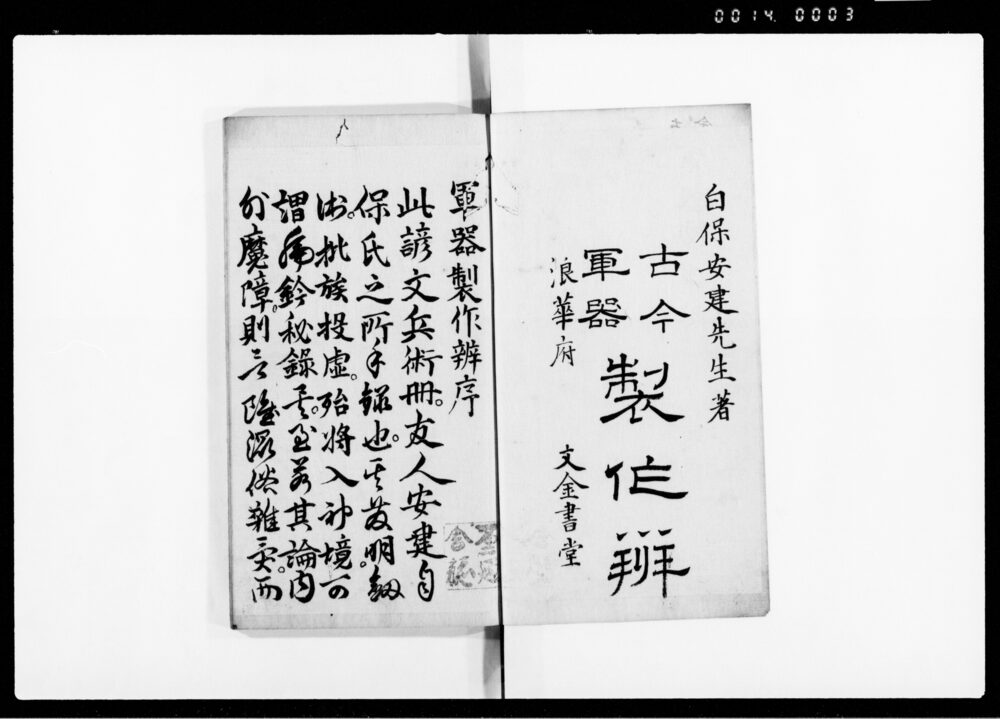 0014 0003
白保安建先生著
古今
軍器
製作辨
浪華府
文金書堂
軍器製作辨序
此諺文兵術冊。友人安建自
保氏之所手録也。其發明劔
術。批族投虚。殆将入神境。可
謂 鈐秘錄 至若其論内
外魔障。則 雖涉俗難 而